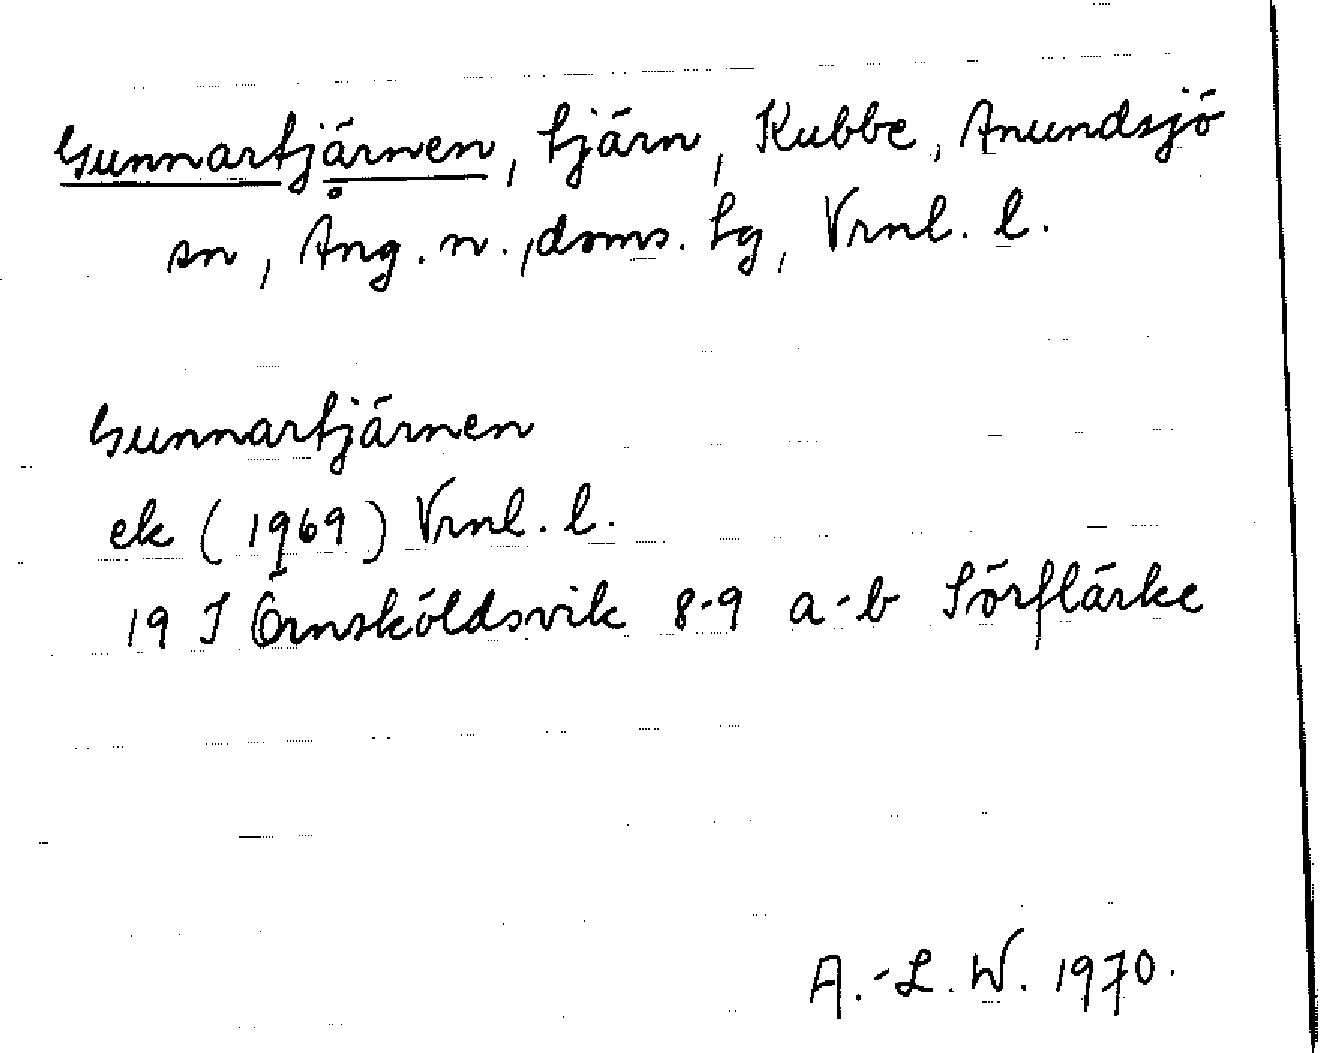 Gunnartjärnen, tjärn, Kubbe, Anundsjö
sn, Ång. n., doms. lg, Vrnl. l.
Gunnartjärnen
ek (1969) Vrnl. l.
19 I Örnsköldsvik 8-9 a-b Sörflärke
A.-L. W. 1970.